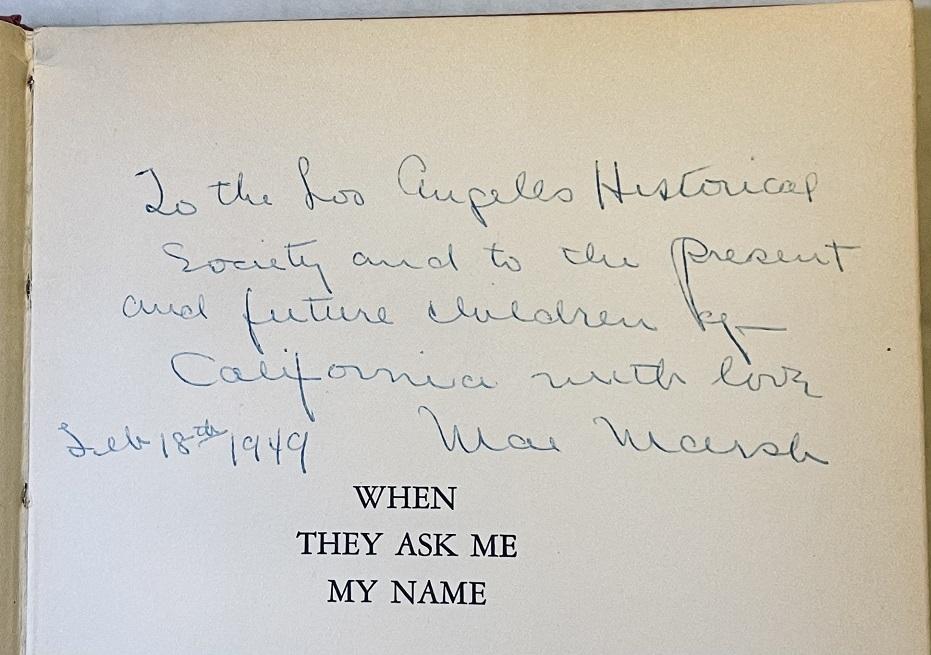 To the Los Angeles Historical
Society and to the Present
and future children of
California with love
Feb 18th 1949 Mae Marsh
WHEN
THEY ASK ME
MY NAME